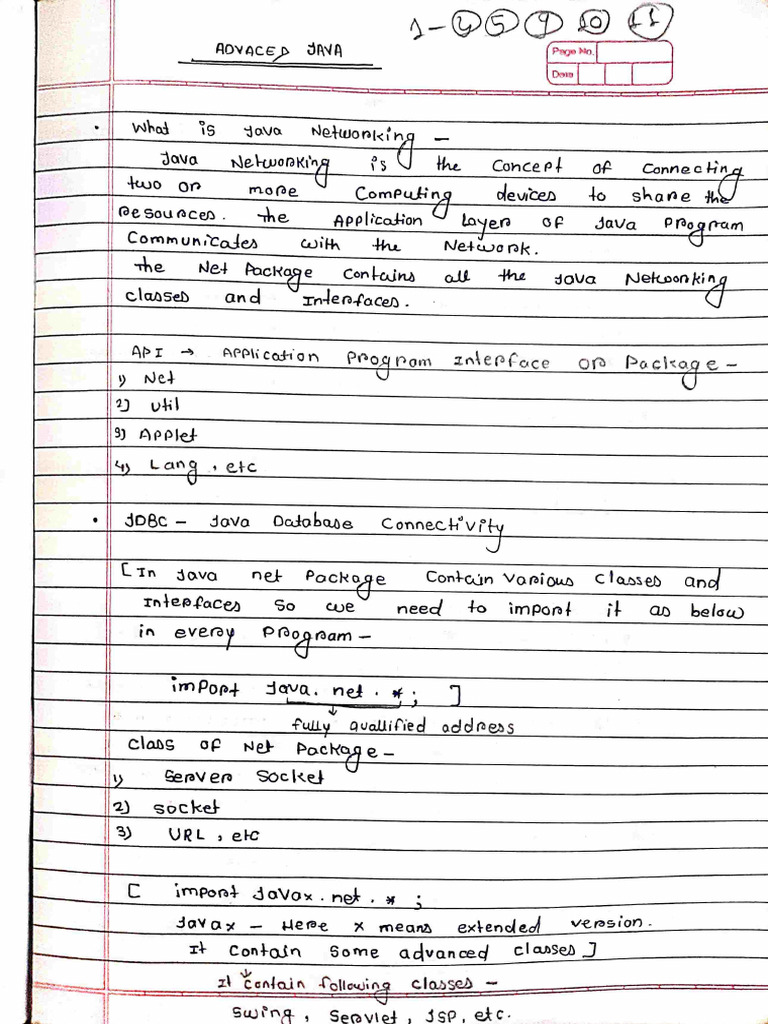 1-4 5 9 10 11
ADVACED JAVA
Page No.
Date
• What is Java Networking -
Java Networking is the concept of connecting
two or more computing devices to share the
resources. The Application Layer of Java program
communicates with the Network.
the Net Package contains all the Java Netwonking
classes and Interfaces.
API → Application Program Interface or Package -
1) Net
2) Util
3) Applet
4) Lang, etc
• JDBC - Java Database Connectivity
[In Java net Package contain various classes and
Interfaces so we need to import it as below
in every program -
import Java.net.*; ]
↓
fully quallified address
class of Net Package -
1) Server Socket
2) Socket
3) URL, etc
[ import Javax.net.* ;
Javax - Here x means extended version.
It contain some advanced classes]
It contain following classes -
Swing, Servlet, JSP, etc.